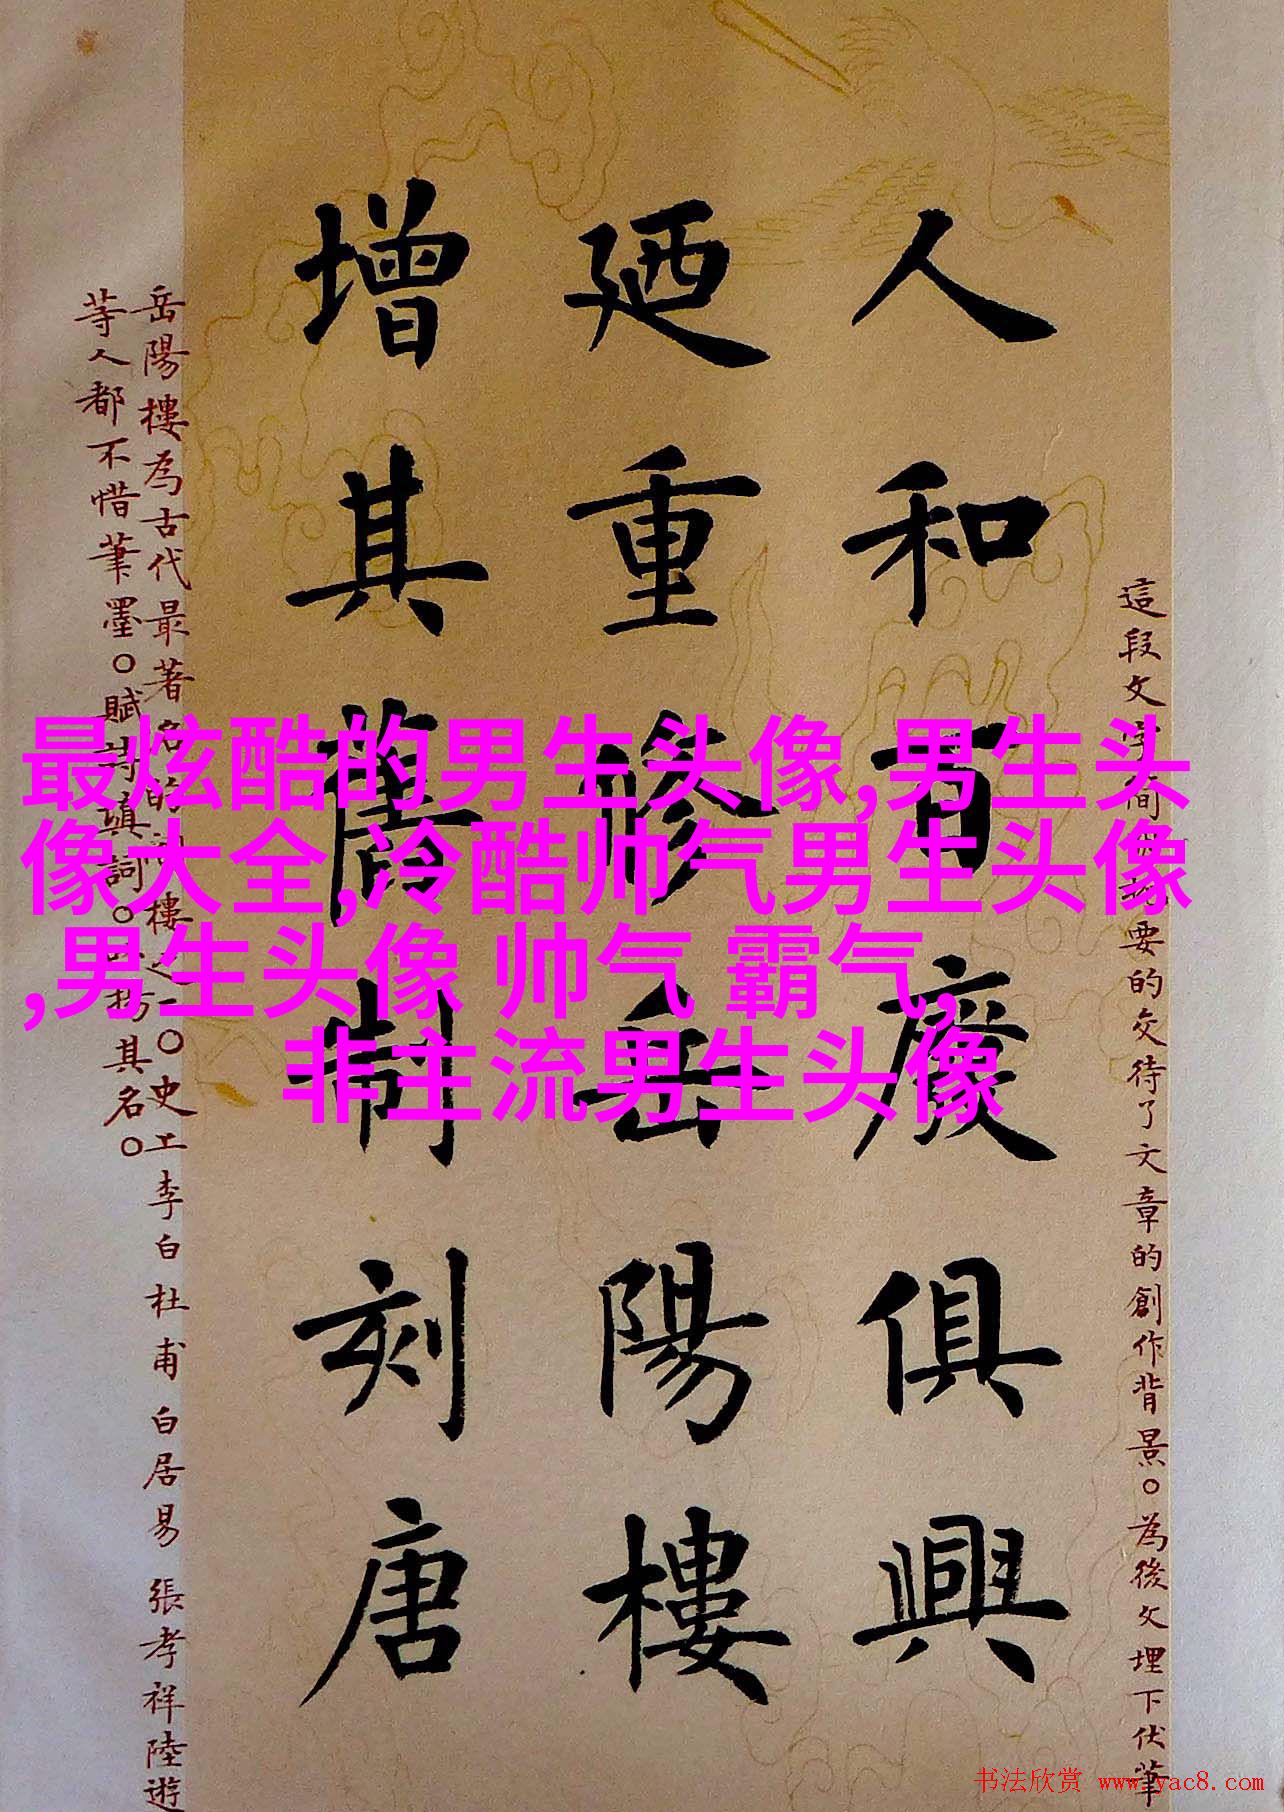 這段文字簡要的交待了文章的創作背景。為後文埋下伏筆
人和百廢俱興
廼重修岳陽樓
增其舊制刻唐
岳陽樓為古代最著名的樓之一。史上李白杜甫白居易張孝祥陸遊
等人都不惜筆墨。賦詩填詞。揚其名。
最炫酷的男生头像,男生头
像大全,冷酷帅气男生头像
,男生头像 帅气 霸气,
非主流男生头像
书法欣赏 www.yac8.com